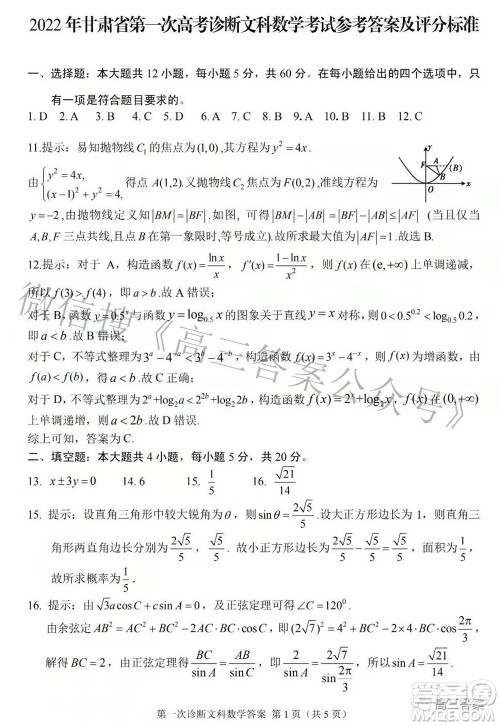 2022 年甘肃省第一次高考诊断文科数学考试参考答案及评分标准
一、选择题：本大题共 12 小题，每小题 5 分，共 60 分。在每小题给出的四个选项中，只
有一项是符合题目要求的。
1. D 2. A 3. B 4. D 5. C 6. D 7. A 8. A 9. C 10. B 11. B 12. C
11.提示：易知抛物线 C₁ 的焦点为(1,0),其方程为 y²=4x.
由{y²=4x, (x-1)²+y²=4, 得点 A(1,2).又抛物线 C₂ 焦点为 F(0,2) ,准线方程为
y=-2,由抛物线定义知|BM|=|BF|.如图，可得|BM|-|AB|=|BF|-|AB|≤|AF| (当且仅当
A,B,F 三点共线,且点 B 在第一象限时,等号成立).故所求最大值为|AF|=1.故选 B.
12.提示：对于 A，构造函数 f(x)=lnx/x，f'(x)=(1-lnx)/x²，f(x)在(e,+∞)上单调递减，
所以 f(3)>f(4)，即 a>b.故 A 错误；
对于 B, 函数 y=0.5ˣ与函数 y=log₀.₅x的图象关于直线 y=x对称，则 0<0.5⁰·²<log₀.₅0.2，
即 a<b.故 B 错误；
对于 C，不等式整理为 3ᵃ-4⁻ᵃ<3ᵇ-4⁻ᵇ，构造函数 f(x)=3ˣ-4⁻ˣ，f(x)为增函数，由
f(a)<f(b)，得 a<b.故 C 正确；
对于 D, 不等式整理为 2ᵃ+log₂a<2²ᵇ+log₂2b，构造函数 f(x)=2ˣ+log₂x，f(x)在(0,+∞)
上单调递增，则 a<2b.故 D 错误.
综上可知，答案为 C.
二、填空题：本大题共 4 小题，每小题 5 分，共 20 分。
13. x±3y=0 14. 6 15. 1/5 16. √21/14
15. 提示：设直角三角形中较大锐角为θ，则 sinθ=2√5/5.设大正方形边长为 1，则直角三角
形两直角边长分别为 2√5/5，√5/5，所以小正方形边长为 2√5/5-√5/5=√5/5，面积为 1/5，
故所求概率为 1/5.
16. 提示：由√3acosC+csinA=0，及正弦定理可得∠C=120°.
由余弦定理 AB²=AC²+BC²-2AC*BC*cosC，即(2√7)²=4²+BC²-2*4*BC*cos 2π/3
，解得 BC=2，由正弦定理得 BC/sinA=AB/sinC，即 2/sinA=2√7/sin 2π/3，所以 sinA=√21/14.
第一次诊断文科数学答案 第 1 页（共 5 页）
微信搜《高三答案公众号》
高三答案